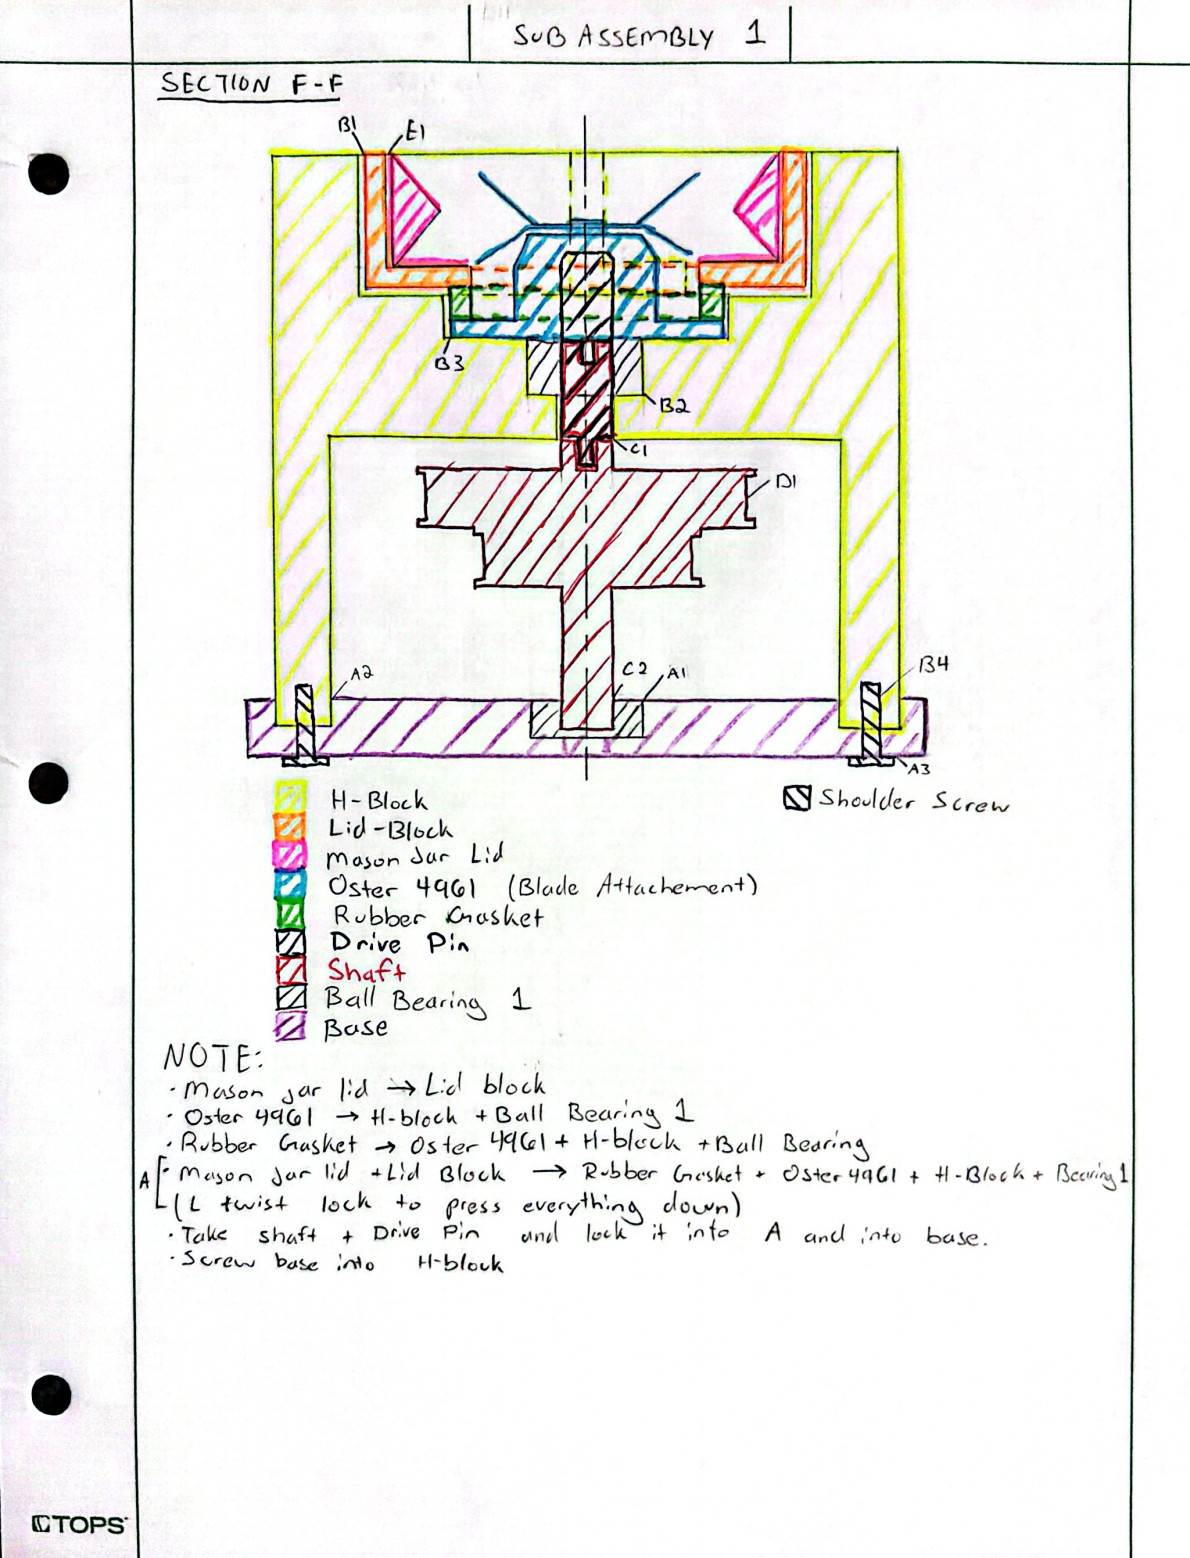 SUB ASSEMBLY 1
SECTION F-F
B1
E1
B3
B2
C1
D1
A2
C2
A1
B4
A3
H-Block
Shoulder Screw
Lid-Block
Mason Jar Lid
Oster 4961 (Blade Attachement)
Rubber Gasket
Drive Pin
Shaft
Ball Bearing 1
Base
NOTE:
· Mason jar lid → Lid block
· Oster 4961 → H-block + Ball Bearing 1
· Rubber Gasket → Oster 4961 + H-block + Ball Bearing
A · Mason Jar lid + Lid Block → Rubber Gasket + Oster 4961 + H-Block + Bearing 1
(L twist lock to press everything down)
· Take shaft + Drive Pin and lock it into A and into base.
· Screw base into H-block
TOPS